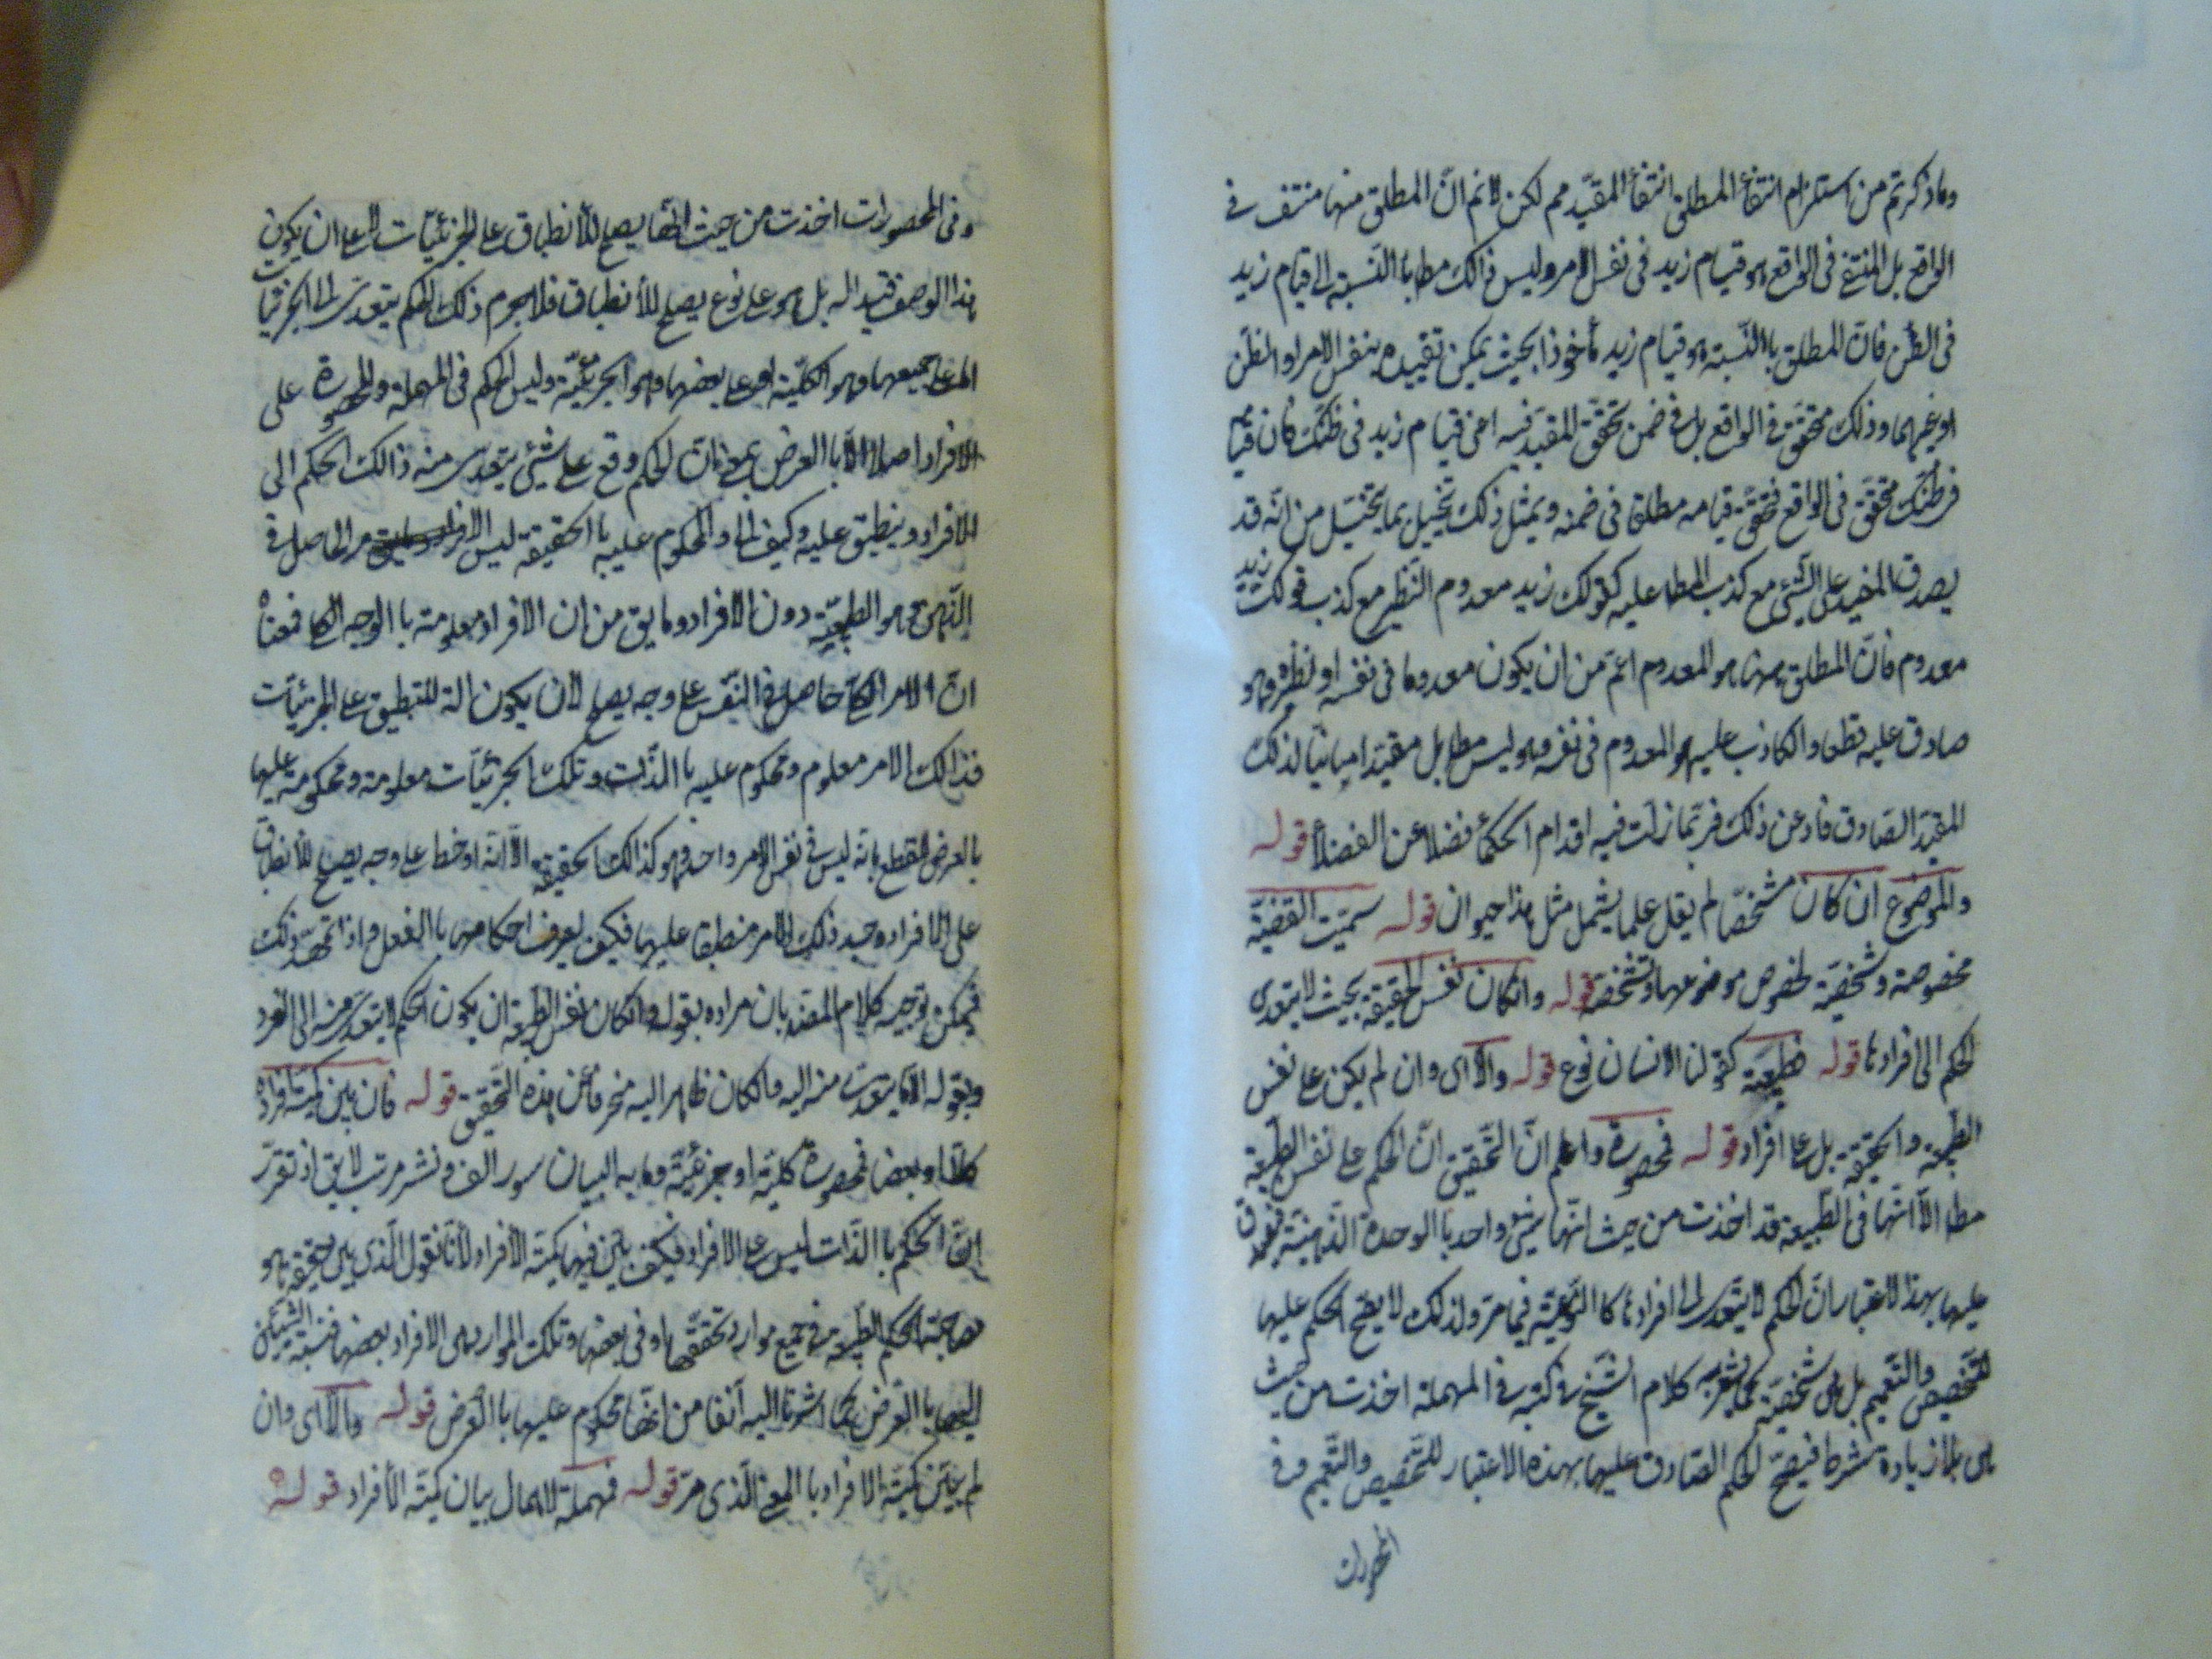 وما ذكرتم من استلزام انتفأ المطلق انتفأ المقيد مم لكن لانم ان المطلق منها منتف في
الواقع بل المنتفى في الواقع هو قيام زيد في نفس الامر وليس ذالك مطلقا باالنسبة الى قيام زيد
في الظن فان المطلق باالنسبة هو قيام زيد مأخوذا بحيث يمكن تقييده بنفس الامر او الظن
او غيرهما وذلك متحقق في الواقع بل في ضمن تحقق المقيد فيه اعني قيام زيد في ظنك فان قيامه
في ظنك متحقق في الواقع فتحقق قيامه مطلقا في ضمنه وبمثل ذلك تخيل بما يتخيل من انه قد
يصدق المقيد على الشئ مع كذب المط عليه كقولك زيد معدوم النظير مع كذب قولك زيد
معدوم فان المطلق ههنا هو المعدوم اعم من ان يكون معدوما في نفسه او نظيره وهو
صادق عليه قطعا والكاذب عليه هو المعدوم في نفسه وهو ليس مط بل مقيد مباينا لذلك
المقيد الصادق عن ذلك فربما زلت فيه اقدام الحكمأ فضلا عن الفضلأ قوله
والموضوع ان كان مشخصا لم يقل علما يشمل مثل هذا حيوان قوله سميت القضية
مخصوصة وشخصية لخصوص موضوعها وتشخصه قوله وانكان نفس الحقيقة بحيث لا يتعدى
الحكم الى افرادها قوله فطبيعية كقولنا الانسان نوع قوله والا اى وان لم يكن على نفس
الطبيعة والحقيقة بل على افراد قوله فمحصورة واعلم ان التحقيق ان الحكم على نفس الطبيعة
مط الا انها في الطبيعة قد اخذت من حيث انها شئ واحد باالوحدة الذهنية
عليها بهذا الاعتبار ان الحكم لا يتعدى الى افرادها كا النوعية فيما مر ولذلك لا يصح الحكم عليها
للتخصيص والتعميم بل هى شخصية كما يشعر به كلام الشيخ في كتبه في المهملة اخذت من حيث
هى بلا زيادة شرط فيصح الحكم الصادق عليها بهذه الاعتبار للتخصيص والتعميم وفي
المحصورات
وفي المحصورات اخذت من حيث انها يصلح للأنطباق على الجزئيات لا على ان يكون
هذا الوصف قيدا له بل هو على نوع يصلح للأنطباق فلا جرم ذلك الحكم يتعدى الى الجزئيات
اما على جميعها وهو الكلية او على بعضها وهو الجزئية وليس الحكم في المهملة والمحصورة على
الافراد اصلا الا باالعرض بمعنى ان الحكم وقع على شئ يتعدى منه ذالك الحكم الى
الافراد وينطبق عليه وكيف لا والمحكوم عليه باالحقيقة ليس الا الامر الحاصل في
الذهن وهو الطبيعة دون الافراد وما يق من ان الافراد معلومة باالوجه الكلى فمعناه
ان الامر الكلى حاصل في النفس على وجه يصلح لأن يكون الة للتطبيق على الجزئيات
فذالك الامر معلوم ومحكوم عليه باالذات وتلك الجزئيات معلومة ومحكومة عليها
بالعرض للقطع بانه ليس في نفس الامر واحد وهو كذالك الحقيقة الا انه لوحظ على وجه يصلح للأنطباق
على الافراد وجد ذلك الامر منطبقا عليها فكيف يعرف احكامها باالفعل واذا تمهد ذلك
فيمكن توجيه كلام المصنف بان مراده بقوله وانكان نفس الطبيعة ان يكون الحكم لا يتعدى منه الى الفرد
وبقوله الا ما يتعدى منه اليه وانكان ظاهر اليه منحرفا عن هذه التحقيق قوله فان بين كمية افراده
كلا او بعضا فمحصورة كلية او جزئية وما به البيان سور الف ونشر مرتب لا يق اذ تقرر
ان الحكم باالذات ليس على الافراد فكيف يبين فيها كمية الأفراد لأنا نقول الذي بين حقيقة هو
مصاحبة الحكم للطبيعة في جميع موارد تحققها او في بعضها وتلك الموارد هى الافراد بعضها فنسبة التبيين
اليها باالعرض كما اشرنا اليه آنفا من انها محكوم عليها باالعرض قوله والا اى وان
لم يبين كمية الافراد باالمعنى الذي مر قوله فمهملة لاهمال بيان كمية الأفراد قوله